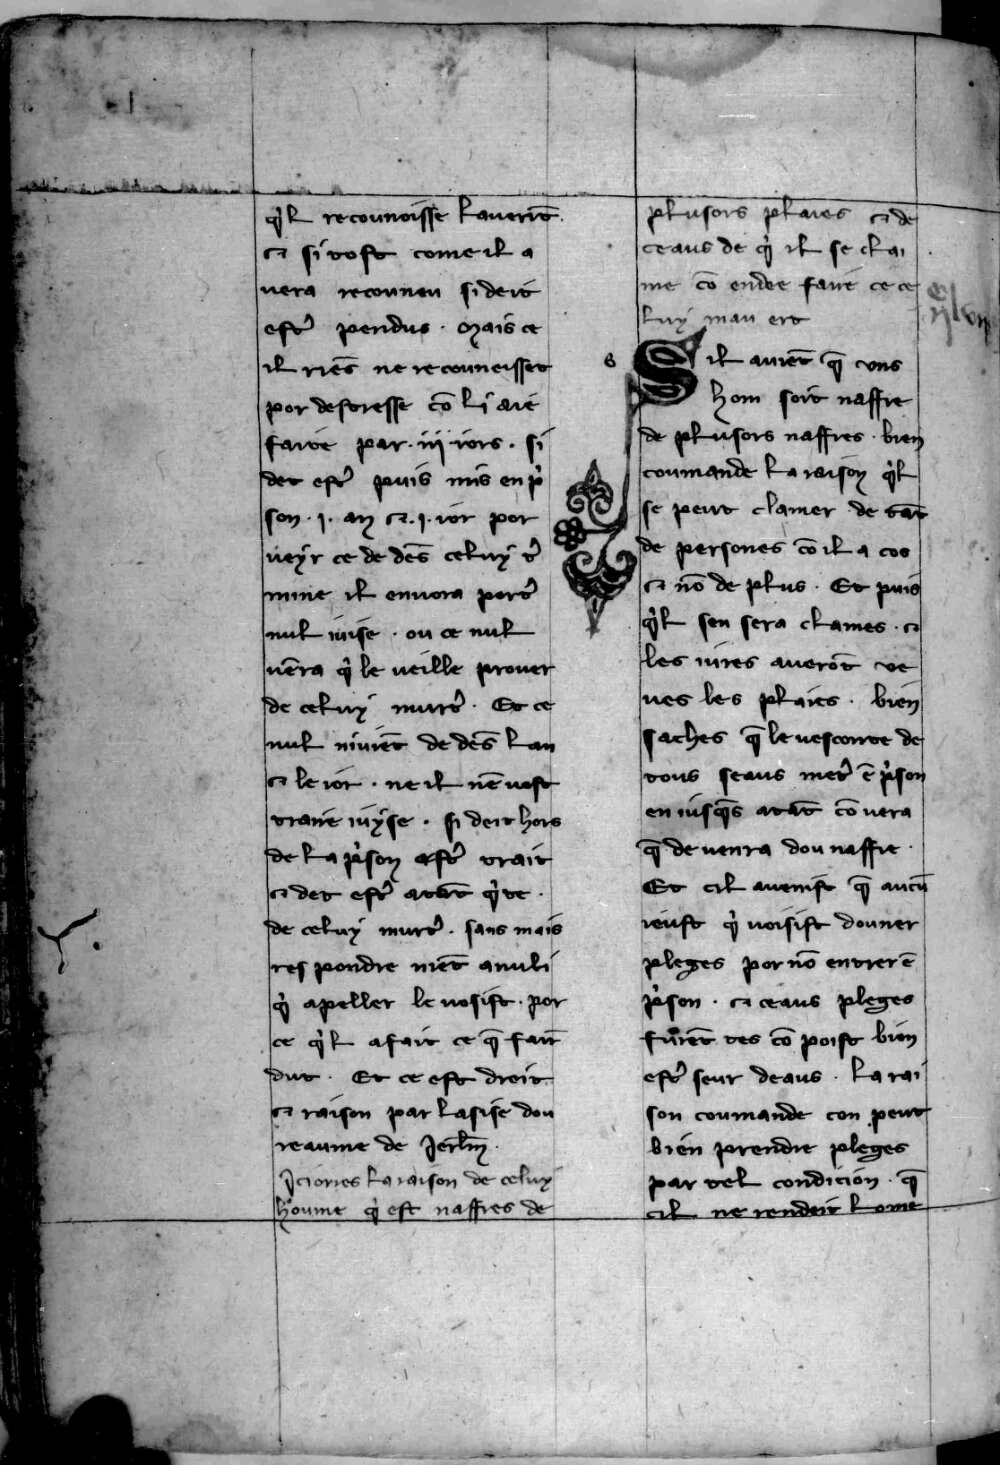 q̓l reconnoisse lauerite᷒.
⁊ si tost come il a
uera reconneu si deit
estr̓ pendus . Mais ce
il riens̄ ne reconneisset
por destresse cō li aie
faite par . iij iors . si
det estr̓ puis mis en p̓
son . j . an ⁊ . j . ior por
ueyr ce de dēs celuy t̓
mine il enuora port̓
nul iuise . ou ce nul
uēra q̓ le ueille prouer
de celuy murt̓ . Et ce
nul ni uiēt de dēs lan
⁊ le ior . ne il nē uost
traire iuyse . si deit hors
de la p̓son estr̓ trait
⁊ det estr̓ atāt q̓te .
de celuy murt̓ . sans mais
res pondre niēt a nuli
q̓ apeller le uosist . por
ce q̓l a fait ce q̄ faire
dut . Et ce est droit
⁊ raison par lasise dou
reaume de Jerlm̄ .
Ici orres la raison de celuy
houme q̓ est naffres de
plusors plaies ⁊ de
ceaus de q̓ il se clai
me cō en dee faire ce ce
luy mau ert
s Sil auiēt q̄ uns
hom soit naffre
de plusors naffres . bien
coumande la raison q̓l
se peut clamer de tāt
de persones cō il a cos
⁊ nō de plus . Et puis
q̓l sen sera clames . ⁊
les iures auerōt ve
ues les plaies . bien
saches q̄ le uesconte de
tous seaus metr̓ ē p̓son
en iusq̄s atāt cō uera
q̄ de uenra dou naffre .
Et cil auenist q̄ aucū
i eust q̓ uoisist douner
pleges por nō entrer ē
p̓son . ⁊ ceaus pleges
furēt tes cō poist bien
estr̓ seur deaus . la rai
son coumande con peut
bien prendre pleges
par tel condicion . q̄
cil ne rendeit lome